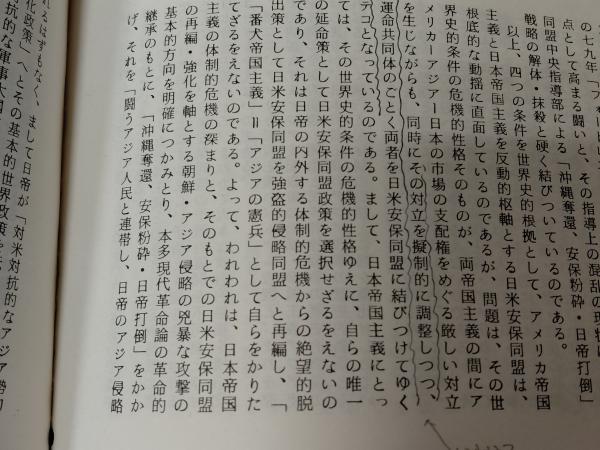 の七九年「フォード
点として高まる闘いと、その指導上の混乱の現状
同盟中央指導部による「沖縄奪還、安保粉砕・日帝打倒」
戦略の解体・抹殺と硬く結びついているのである。
以上、四つの条件を世界史的根拠として、アメリカ帝国
主義と日本帝国主義を反動的枢軸とする日米安保同盟は、
根底的な動揺に直面しているのであるが、問題は、その世
界史的条件の危機的性格そのものが、両帝国主義の間にア
メリカーアジアー日本の市場の支配権をめぐる厳しい対立
を生じながらも、同時にその対立を擬制的に調整しつつ、
運命共同体のごとく両者を日米安保同盟に結びつけてゆく
テコとなっているのである。まして、日本帝国主義にとっ
ては、その世界史的条件の危機的性格ゆえに、自らの唯一
の延命策として日米安保同盟政策を選択せざるをえないの
であり、それは日帝の内外する体制的危機からの絶望的脱
出策として日米安保同盟を強盗的侵略同盟へと再編し、「
「番犬帝国主義」＝「アジアの憲兵」として自らをかりた
てざるをえないのである。よって、われわれは、日本帝国
主義の体制的危機の深まりと、そのもとでの日米安保同盟
の再編・強化を軸とする朝鮮・アジア侵略の兇暴な攻撃の
基本的方向を明確につかみとり、本多現代革命論の革命的
継承のもとに、「沖縄奪還、安保粉砕・日帝打倒」をかか
げ、それを「闘うアジア人民と連帯し、日帝のアジア侵略
れるはずもなく、まして日帝が「対米対抗的なアジア勢力
化政策」へとその基本的世界政策を
的な軍事大国